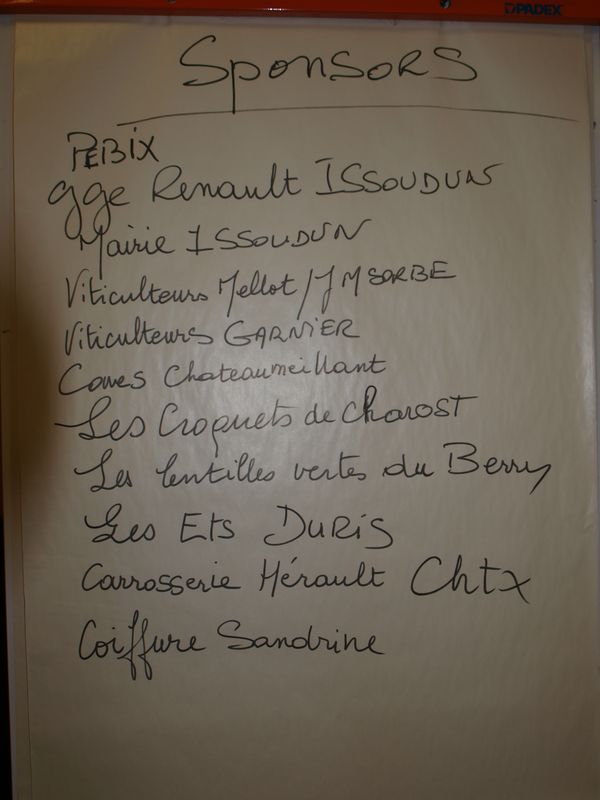 DPADEX
Sponsors
PEBIX
gge Renault ISSOUDUN
Mairie ISSOUDUN
Viticulteurs Mellot/JM SORBE
Viticulteurs GARNIER
Caves Chateaumeillant
Les Croquets de Charost
Les lentilles vertes du Berry
Les Ets DURIS
Carrosserie Hérault Chtx
Coiffure Sandrine